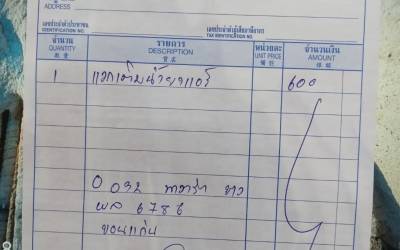 ADDRESS
เลขประจำตัวประชาชน
IDENTIFICATION NO.
เลขประจำตัวผู้เสียภาษีอากร
TAX IDENTIFICATION NO.
จำนวน
QUANTITY
รายการ
DESCRIPTION
หน่วยละ
UNIT PRICE
จำนวนเงิน
AMOUNT
1 แวคเติมน้ำยาแอร์ 600
ขาว
6786
ขอนแก่น